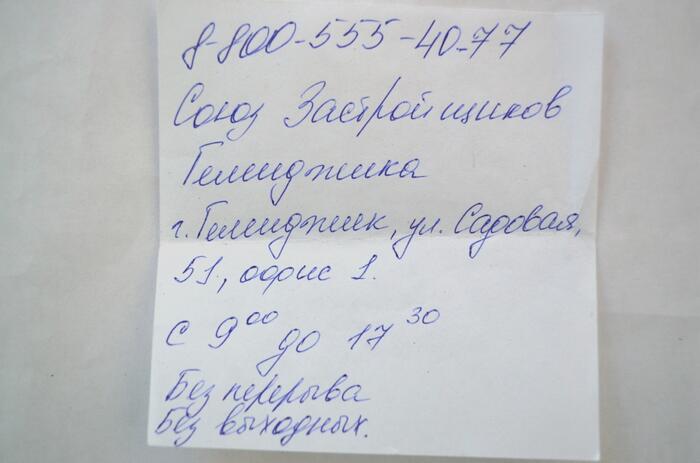 8-800-555-40-77
Союз Застройщиков
Геленджика
г. Геленджик, ул. Садовая,
51, офис 1.
с 9⁰⁰ до 17³⁰
Без перерыва
Без выходных.